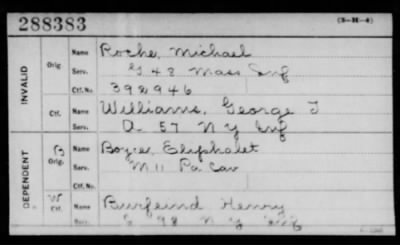 288383
(3-H-4)
INVALID
Orig
Name Roche, Michael
Serv. G 48 Mass Inf
Ctf. No. 392946
Ctf.
Name Williams, George T
Serv. A 57 N Y Inf
DEPENDENT
B
Orig.
Name Boyce, Eliphalet
Serv. M 11 Pa Cav
Ctf. No.
W
Ctf.
Name Burfeind Henry
Serv. 98 N Y Inf